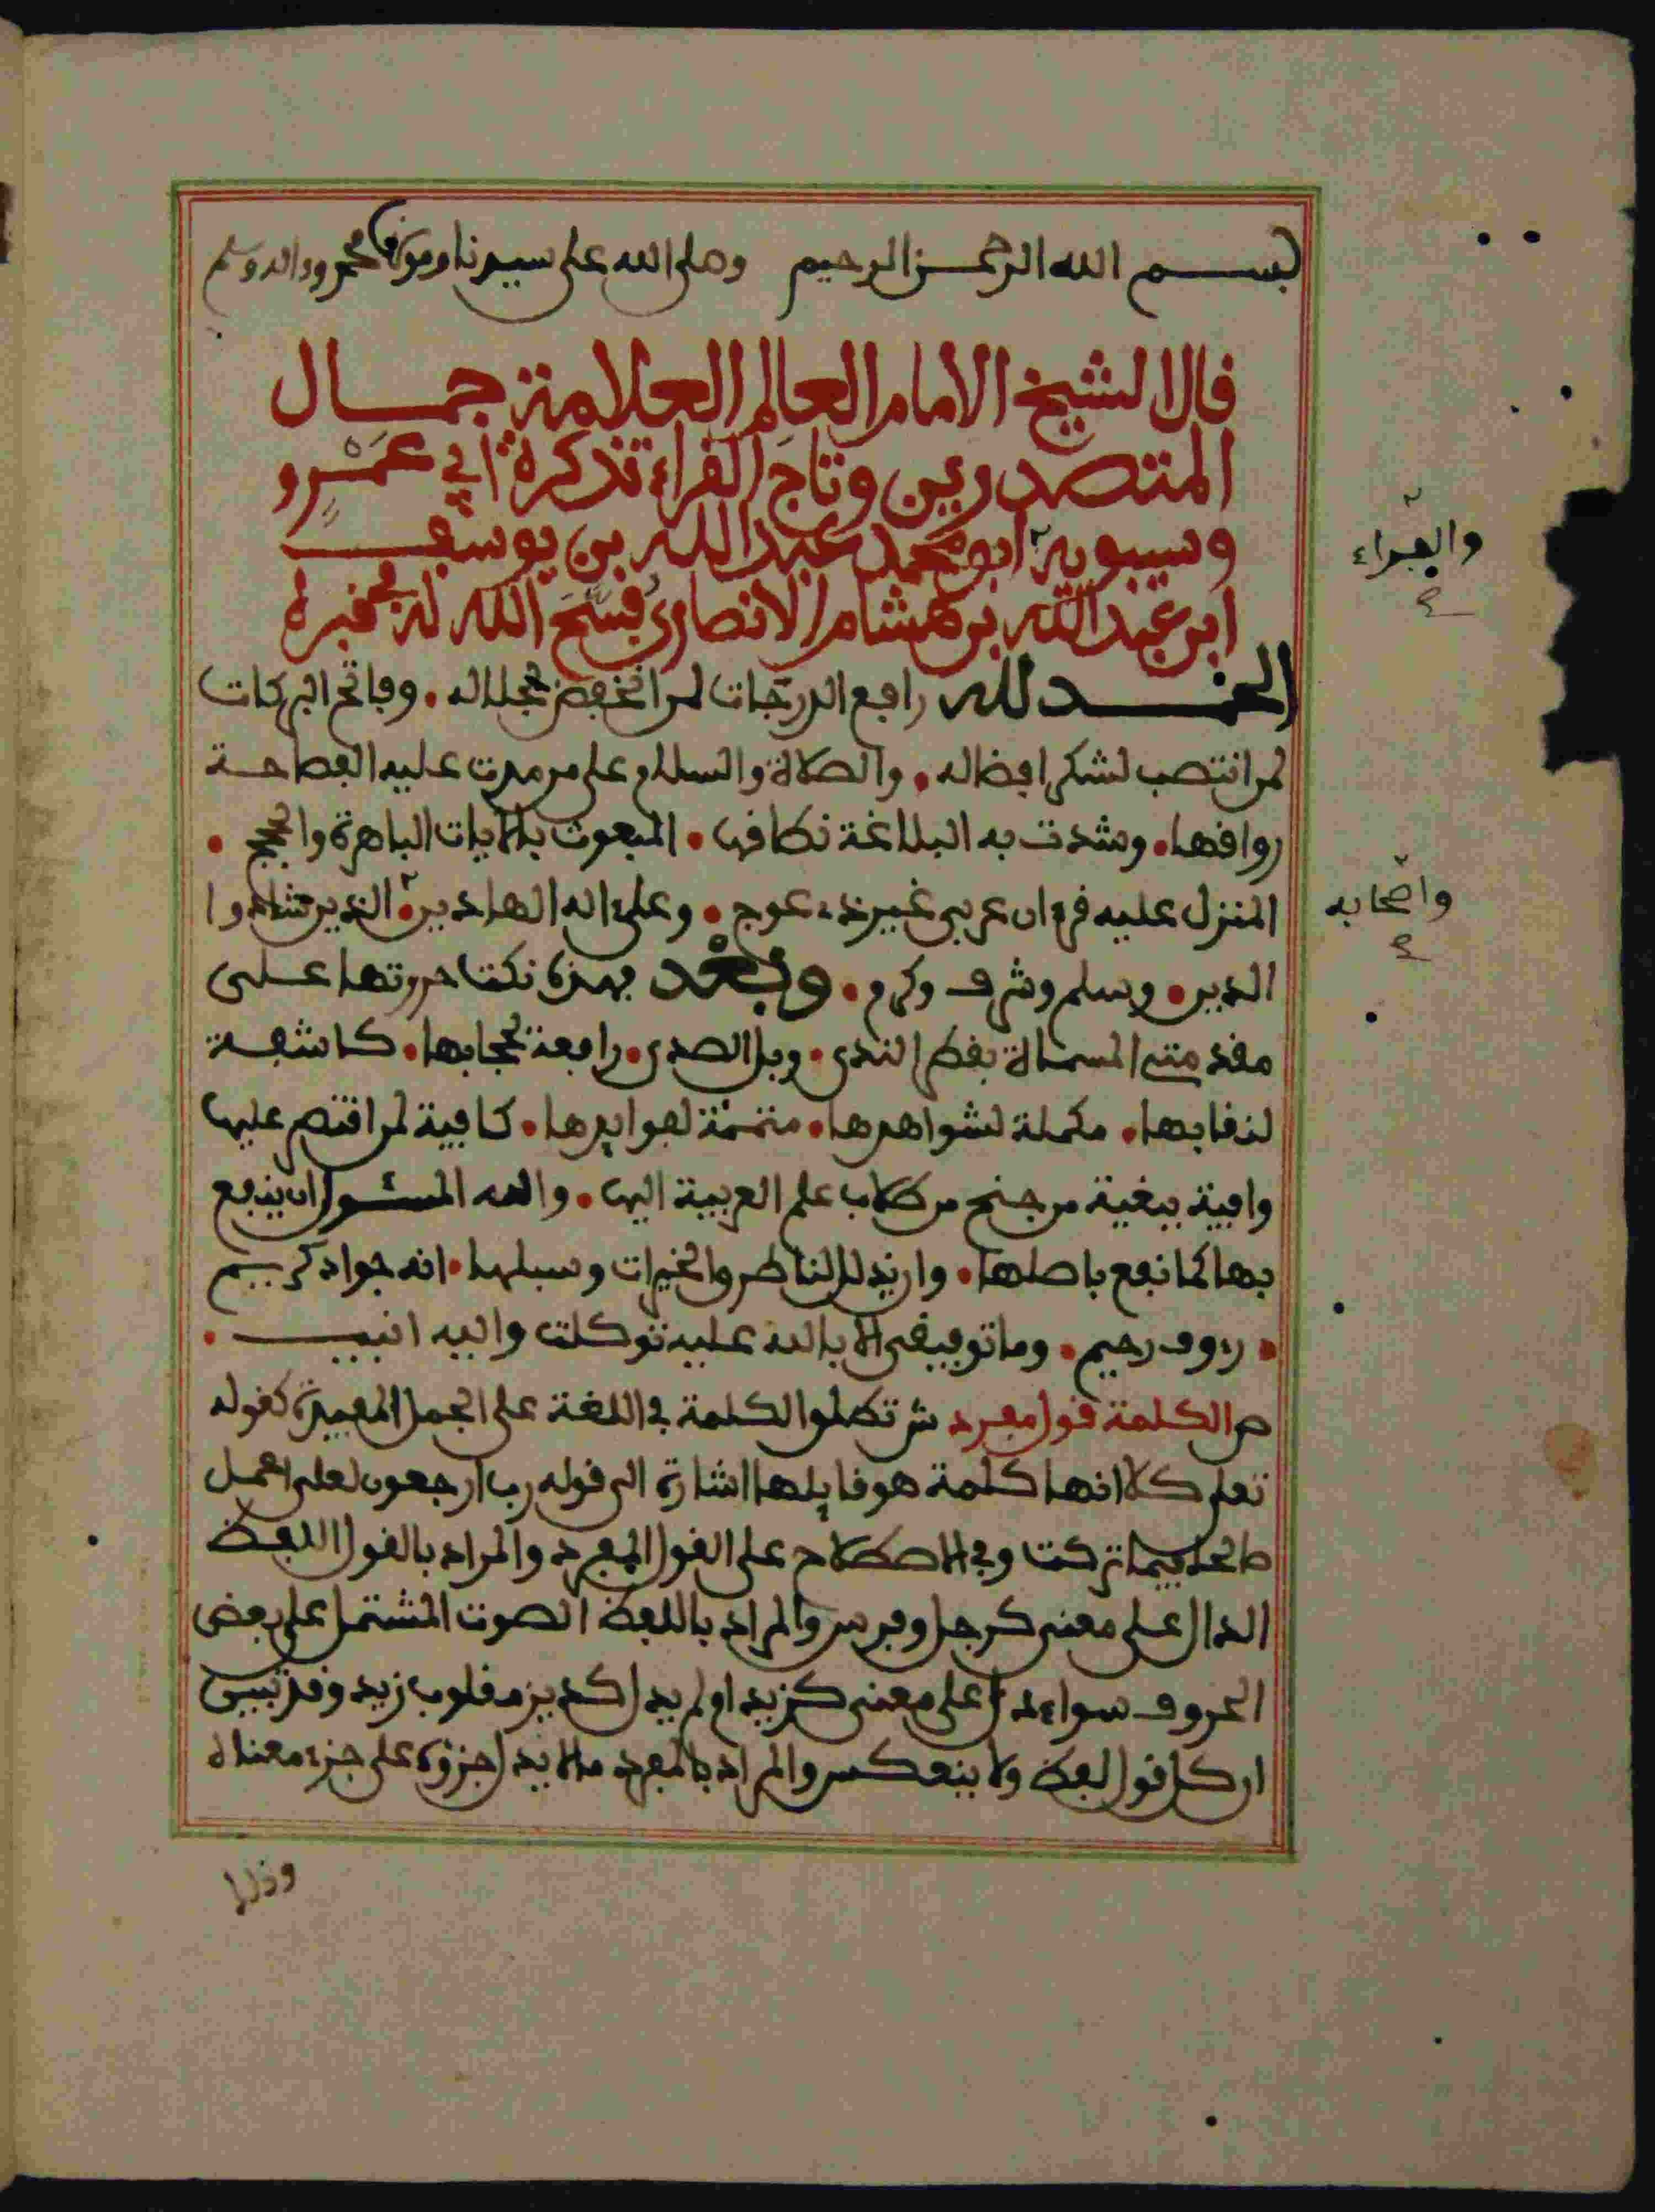 بسم الله الرحمن الرحيم وصلى الله على سيدنا ومولانا محمد واله وسلم
قال الشيخ الامام العالم العلامة جمال
المتصدرين وتاج القراء تذكرة ابي عمرو
وسيبويه ابو محمد عبد الله بن يوسف
ابن عبد الله بن هشام الانصاري فسح الله له في قبره
والفراء
الحمد لله رافع الدرجات لمن انخفض لجلاله . وفاتح البركات
لمن انتصب لشكر افضاله . والصلاة والسلام على من مدت عليه الفصاحة
رواقها . وشدت به البلاغة نطاقها . المبعوث بالايات الباهرة والحجج .
المنزل عليه قرءان عربي غير ذي عوج . وعلى اله الهادين . الذين شادوا
واصحابه
الدين . وسلم وشرف وكرم . وبعد فهذه نكت حررتها على
مقدمتي المسماة بقطر الندى . وبل الصدى . رافعة لحجابها . كاشفة
لنقابها . مكملة لشواهدها . متممة لفوايدها . كافية لمن اقتصر عليها
وافية ببغية من جنح من طلاب علم العربية اليها . والله المسئول ان ينفع
بها كما نفع باصلها . وان يذلل لنا طرق الخيرات وسبلها . انه جواد كريم
. رءوف رحيم . وما توفيقي الا بالله عليه توكلت واليه انيب .
ص الكلمة قول مفرد ش تطلق الكلمة في اللغة على الجمل المفيدة كقوله
تعلى كلا انها كلمة هو قايلها اشارة الى قوله رب ارجعون لعلي اعمل
صالحا فيما تركت وفي الاصطلاح على القول المفرد والمراد بالقول اللفظ
الدال على معنى كرجل وفرس والمراد باللفظ الصوت المشتمل على بعض
الحروف سواء دل على معنى كزيد او لم يدل كديز مقلوب زيد وقد تبين
ان كل قول لفظ ولا ينعكس والمراد بالمفرد ما لا يدل جزؤه على جزء معناه
وذلك